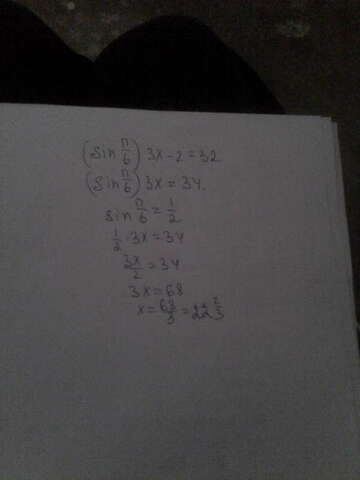 (sin п/6) 3x-2=32
(sin п/6) 3x=34.
sin п/6=1/2
1/2·3x=34
3x/2=34
3x=68
x=68/3=22 2/3